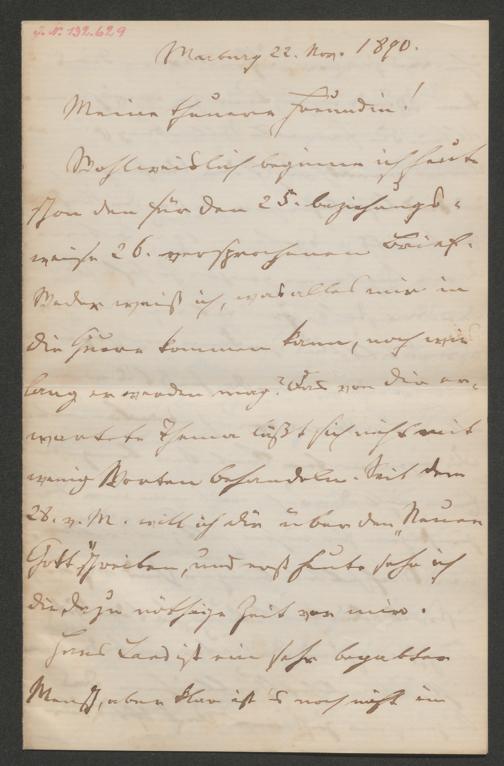 J. N. 132.629
Marburg 22. Nov. 1890.
Meine theuere Freundin!
Wohlweislich beginne ich heute
schon den für den 25. beziehungs-
weise 26. versprochenen Brief.
Weder weiß ich, was alles mir in
die Quere kommen kann, noch wie
lang er werden mag? Das von Dir er-
wartete Thema läßt sich nicht mit
wenig Worten behandeln. Seit dem
28. v. M. will ich Dir über den „Neuen
Gott" schreiben, und erst heute sehe ich
die dazu nöthige Zeit vor mir.
Hans Land ist ein sehr begabter
Mensch, aber klar ist's noch nicht in